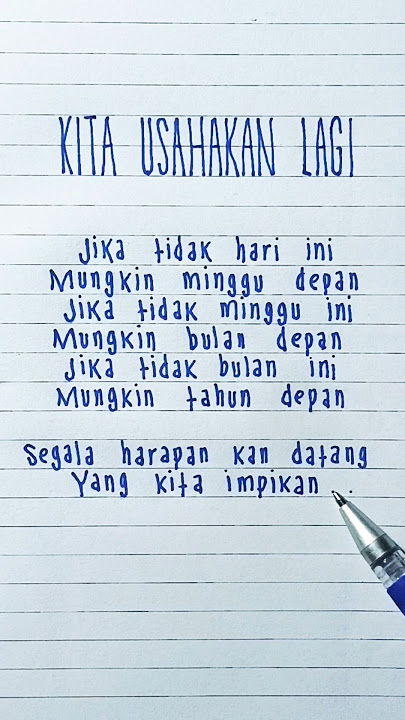 KITA USAHAKAN LAGI
Jika tidak hari ini
Mungkin minggu depan
Jika tidak minggu ini
Mungkin bulan depan
Jika tidak bulan ini
Mungkin tahun depan
Segala harapan kan datang
Yang kita impikan . .